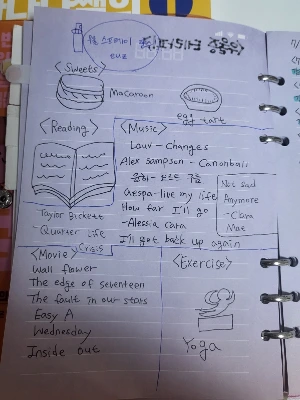 <Sweets>
Macaroon
egg tart
<Reading>
Taylor Bickett
Quarter Life
Crisis
<Music>
Lauv - Changes
Alex Sampson - Canonball
Crespa - live my life
How far I'll go
- Alessia Cara
I'll get back up again
Not sad
Anymore
- Clara
Mae
<Movie>
Wall flower
The edge of seventeen
The fault in our stars
Easy A
Wednesday
Inside out
<Exercise>
Yoga